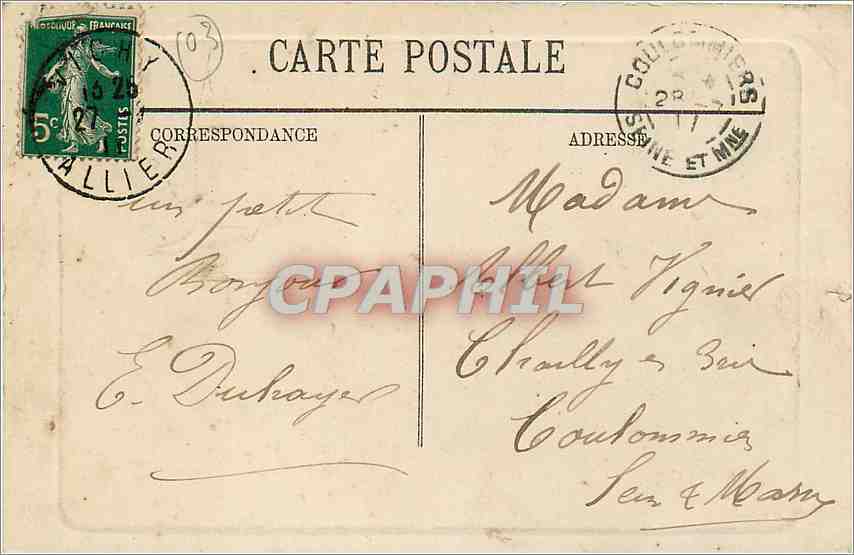 RÉPUBLIQUE FRANÇAISE
5c
POSTES
VICHY
27
ALLIER
03
CARTE POSTALE
COULOMMIERS
28
11
SEINE ET MNE
CORRESPONDANCE
ADRESSE
un petit
Bonjour
E. Duhayer
Madame
Albert Vignier
Chailly en Brie
Coulommiers
Seine & Marne
CPAPHIL